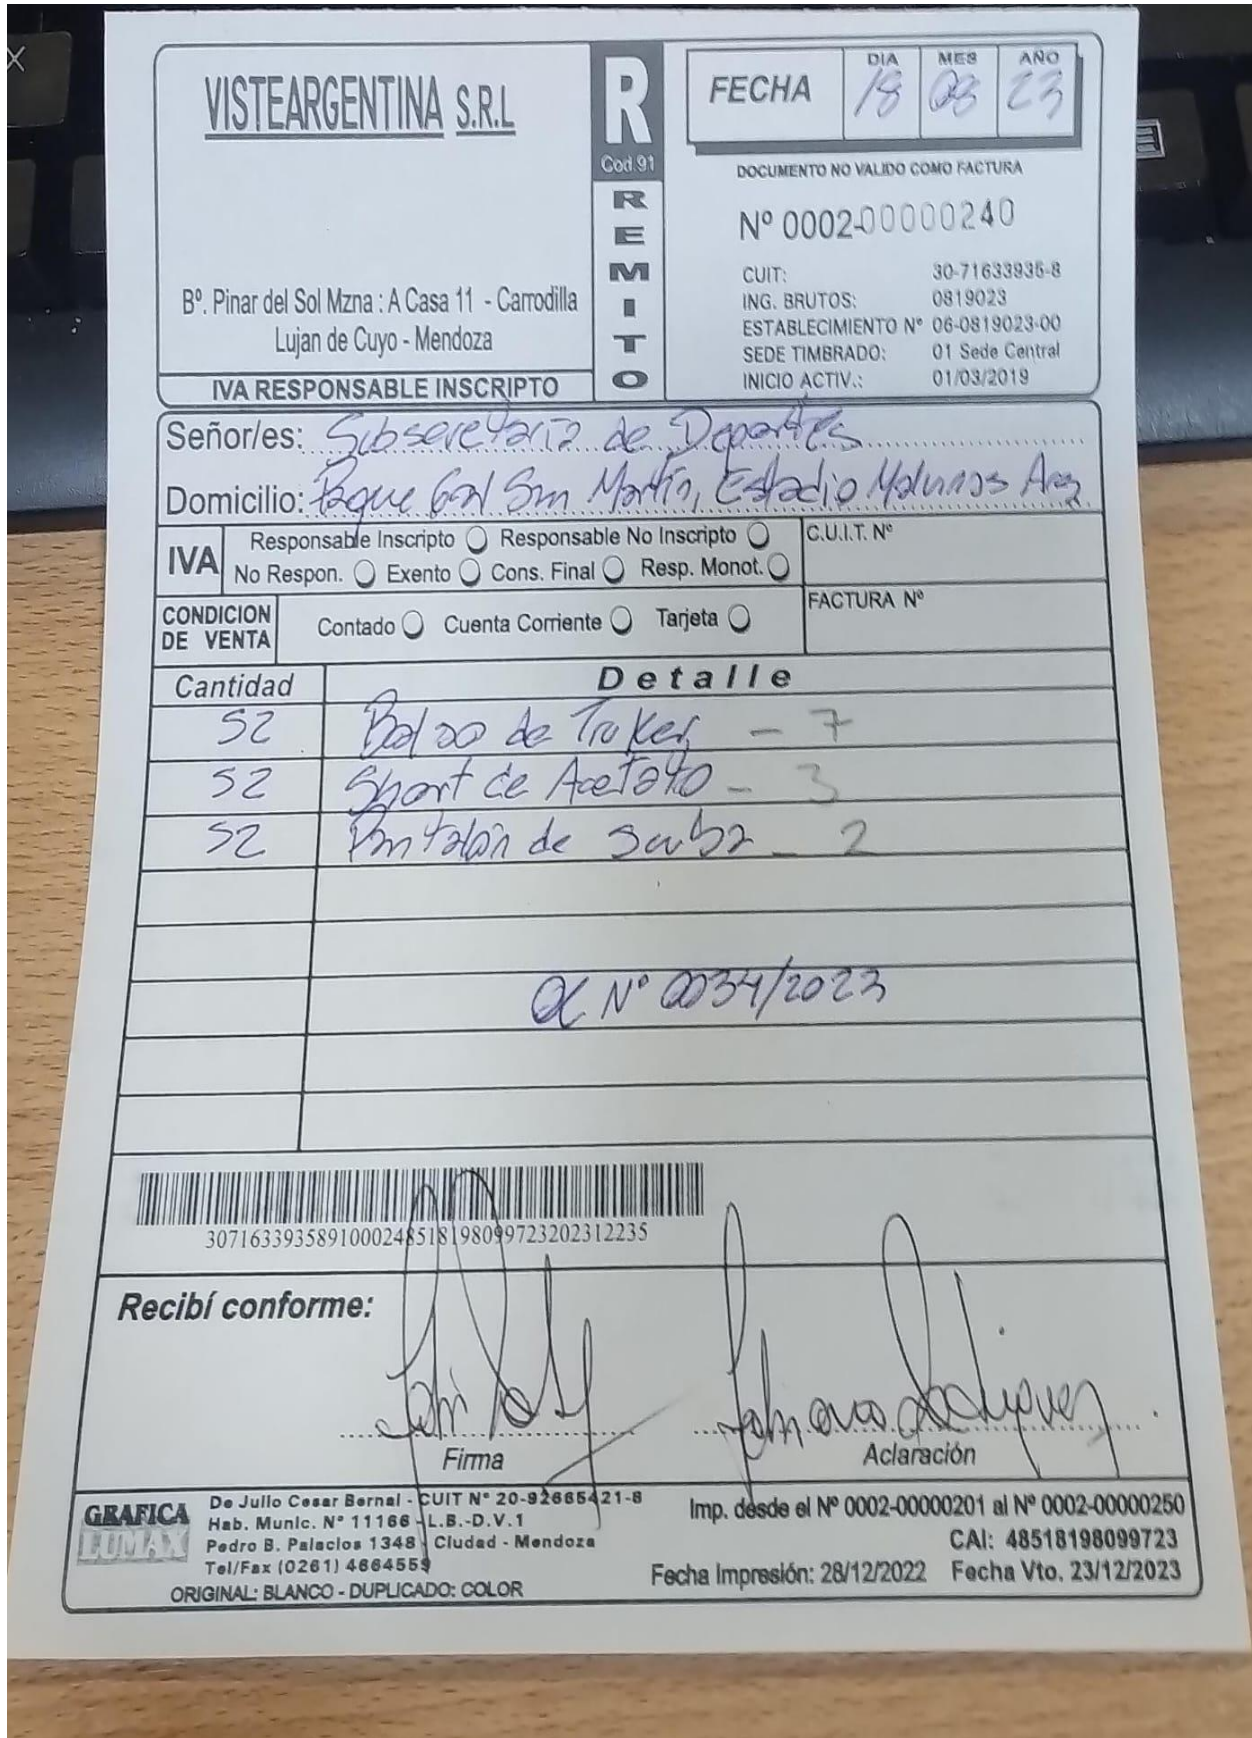 VISTEARGENTINA S.R.L
Bº. Pinar del Sol Mzna : A Casa 11 - Carrodilla
Lujan de Cuyo - Mendoza
IVA RESPONSABLE INSCRIPTO
R
Cod.91
REMITO
FECHA
DIA MES AÑO
18 08 23
DOCUMENTO NO VALIDO COMO FACTURA
Nº 0002-00000240
CUIT: 30-71633935-8
ING. BRUTOS: 0819023
ESTABLECIMIENTO Nº 06-0819023-00
SEDE TIMBRADO: 01 Sede Central
INICIO ACTIV.: 01/03/2019
Señor/es: Subsecretaría de Deportes
Domicilio: Paque Gral San Martín, Estadio Malvinas Arg
IVA
Responsable Inscripto Responsable No Inscripto
No Respon. Exento Cons. Final Resp. Monot.
C.U.I.T. Nº
CONDICION
DE VENTA
Contado Cuenta Corriente Tarjeta
FACTURA Nº
Cantidad Detalle
52 de - 7
52 Short de Acetato - 3
52 Pantalón de scuba - 2
OC Nº 0034/2023
3071633935891000248518198099723202312235
Recibí conforme:
Firma
Aclaración
GRAFICA
LUMAX
De Julio Cesar Bernal - CUIT Nº 20-92665421-8
Hab. Munic. Nº 11166 - L.B.-D.V.1
Pedro B. Palacios 1348 Ciudad - Mendoza
Tel/Fax (0261) 4664559
ORIGINAL: BLANCO - DUPLICADO: COLOR
Imp. desde el Nº 0002-00000201 al Nº 0002-00000250
CAI: 48518198099723
Fecha Impresión: 28/12/2022 Fecha Vto. 23/12/2023